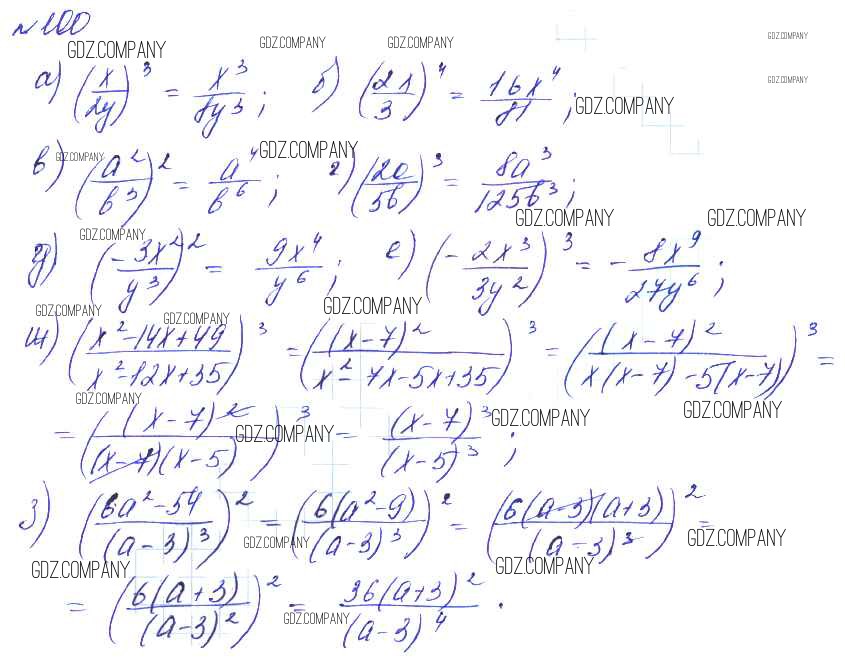 № 100
GDZ.COMPANY GDZ.COMPANY GDZ.COMPANY GDZ.COMPANY
GDZ.COMPANY
а) (x/2y)³ = x³/8y³; б) (2x/3)⁴ = 16x⁴/81; GDZ.COMPANY
GDZ.COMPANY GDZ.COMPANY
в) (a²/b³)² = a⁴/b⁶; г) (2a/5b)³ = 8a³/125b³;
GDZ.COMPANY GDZ.COMPANY
GDZ.COMPANY
д) (-3x²/y³)² = 9x⁴/y⁶; е) (-2x³/3y²)³ = -8x⁹/27y⁶;
GDZ.COMPANY GDZ.COMPANY GDZ.COMPANY
ж) ((x²-14x+49)/(x²-12x+35))³ = ((x-7)²/(x²-7x-5x+35))³ = ((x-7)²/(x(x-7)-5(x-7)))³ =
GDZ.COMPANY GDZ.COMPANY GDZ.COMPANY
= ((x-7)²/((x-7)(x-5)))³ = (x-7)³/(x-5)³;
GDZ.COMPANY
з) ((6a²-54)/(a-3)³)² = (6(a²-9)/(a-3)³)² = (6(a-3)(a+3)/(a-3)³)² =
GDZ.COMPANY GDZ.COMPANY GDZ.COMPANY GDZ.COMPANY
= (6(a+3)/(a-3)²)² = 36(a+3)²/(a-3)⁴.
GDZ.COMPANY